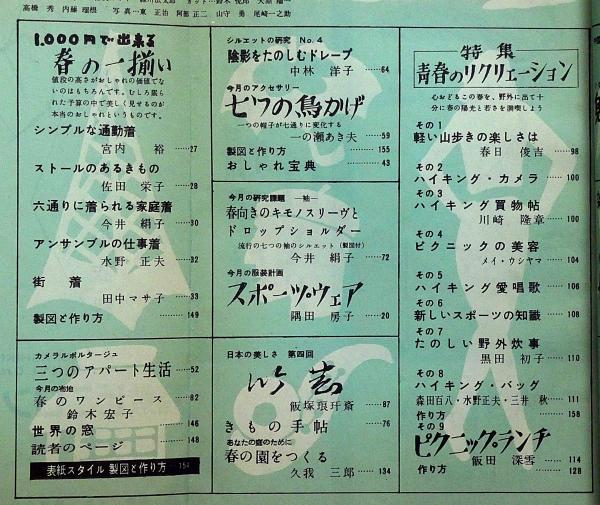 高橋 秀 内藤 瑠根 写真…東 正治 阿部 正二 山守 勇 尾崎一之助
1,000円で出来る
春の一揃い
値段の高さがおしゃれの価値でな
いのはもちろんです。むしろ限ら
れた予算の中で美しく見せるのが
本当のおしゃれというものです。
シンプルな通勤着
宮内 裕……27
ストールのあるきもの
佐田 栄子……28
六通りに着られる家庭着
今井 絹子……30
アンサンブルの仕事着
水野 正夫……32
街着
田中マサ子……33
製図と作り方……149
カメラルポルタージュ
三つのアパート生活……52
今月の布地
春のワンピース……82
鈴木宏子
世界の窓……146
読者のページ……148
表紙スタイル 製図と作り方……154
シルエットの研究 No.4
陰影をたのしむドレープ
中林 洋子……64
今月のアクセサリー
七ツの鳥かげ
一つの帽子が七通りに変化する
一の瀬あき夫……59
製図と作り方……155
おしゃれ宝典……43
今月の研究課題 ―袖―
春向きのキモノスリーヴと
ドロップショルダー
流行の七つの袖のシルエット(製図付)
今井 絹子……72
今月の服装計画
スポーツ・ウェア
隅田 房子……20
日本の美しさ 第四回
竹芸
飯塚琅玕斎……87
きもの手帖……76
あなたの庭のために
春の園をつくる
久我 三郎……134
特集
青春のリクリェーション
心おどるこの春を、野外に出て十
分に春の陽光と若さを満喫しよう
その1
軽い山歩きの楽しさは
春日 俊吉……98
その2
ハイキング・カメラ……100
その3
ハイキング買物帖
川崎 隆章……100
その4
ピクニックの美容
メイ・ウシヤマ……104
その5
ハイキング愛唱歌……106
その6
新しいスポーツの知識……108
その7
たのしい野外炊事
黒田 初子……110
その8
ハイキング・バッグ
森田百八・水野正夫・三井 秋……111
作り方……158
その9
ピクニック・ランチ
飯田 深雪……114
作り方……128